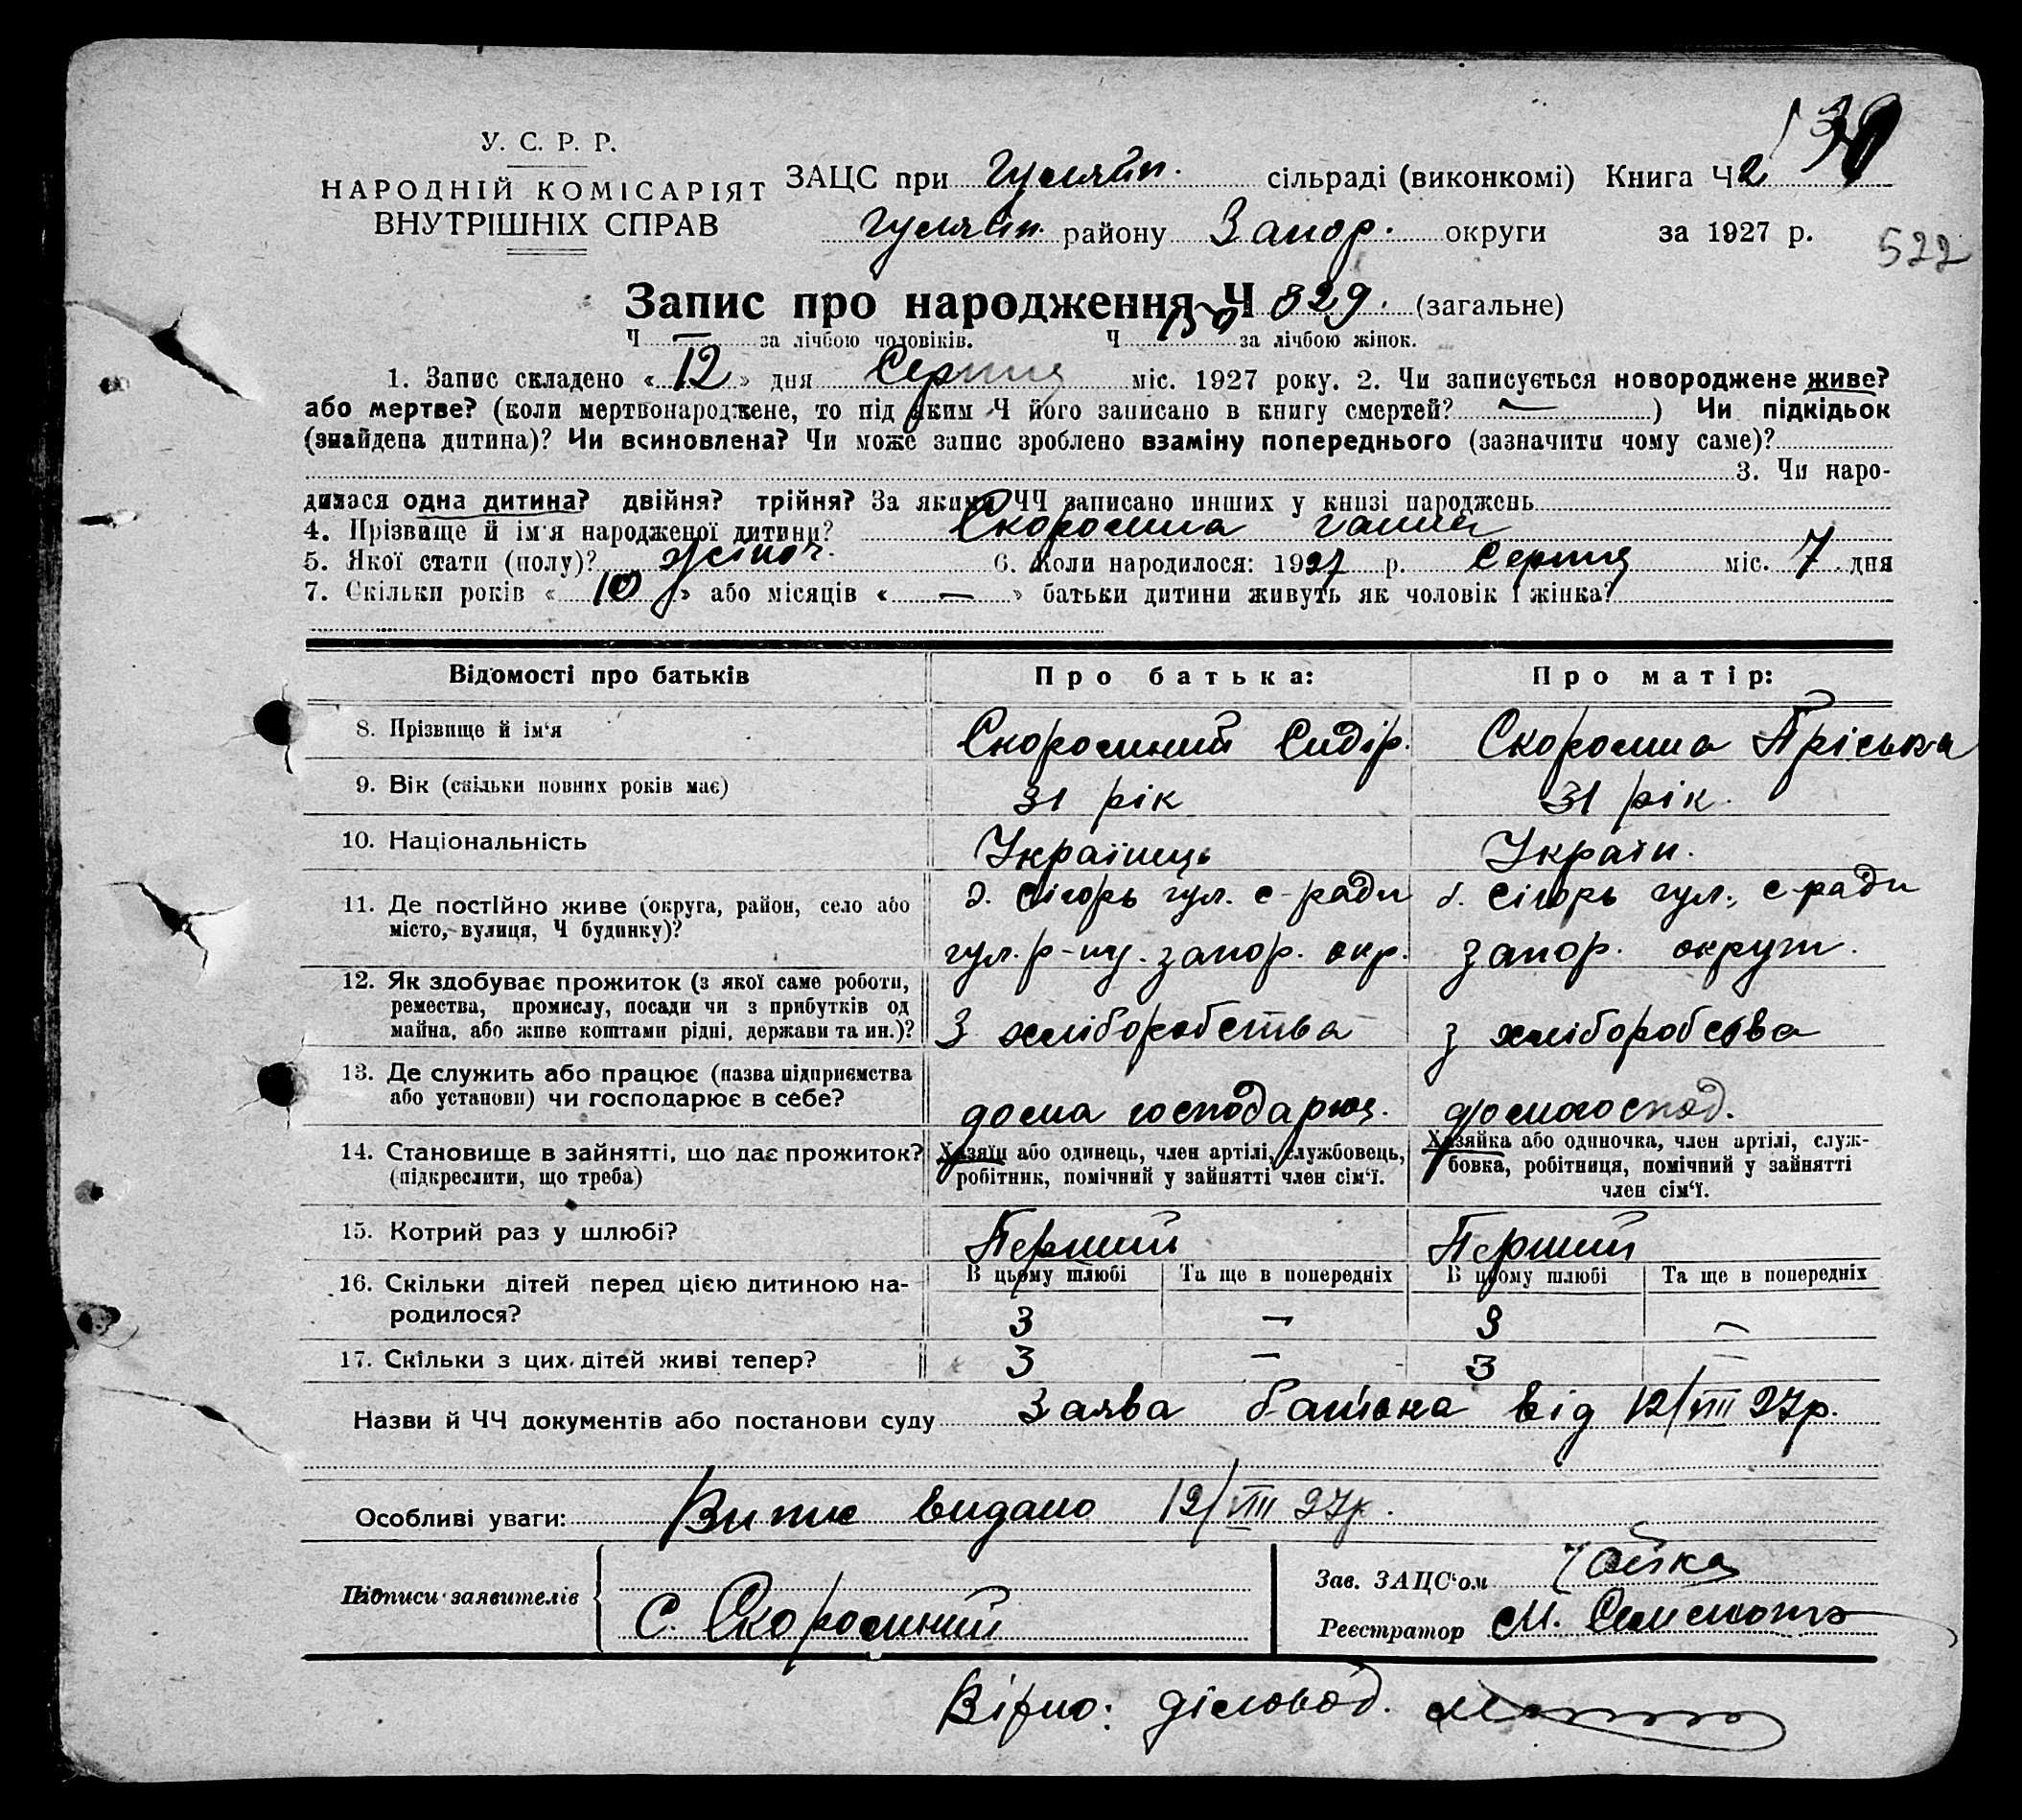 У. С. Р. Р.
НАРОДНІЙ КОМІСАРІЯТ
ВНУТРІШНІХ СПРАВ
ЗАЦС при Гуляйп. сільраді (виконкомі) Книга Ч 2
Гуляйп. району Запор. округи за 1927 р.
522
Запис про народження Ч 329. (загальне)
Ч — за лічбою чоловіків. Ч за лічбою жінок.
1. Запис складено « 12 » дня Серпня міс. 1927 року. 2. Чи записується новороджене живе?
або мертве? (коли мертвонароджене, то під яким Ч його записано в книгу смертей? — ) Чи підкідьок
(знайдена дитина)? Чи всиновлена? Чи може запис зроблено взаміну попереднього (зазначити чому саме)?
3. Чи наро-
дилася одна дитина? двійня? трійня? За якими ЧЧ записано инших у книзі народжень
4. Прізвище й ім'я народженої дитини? Скоромна Ганна
5. Якої стати (полу)? жіноч. 6. Коли народилося: 1927 р. Серпня міс. 7 дня
7. Скільки років « 10 » або місяців « — » батьки дитини живуть як чоловік і жінка?
Відомості про батьків Про батька: Про матір:
8. Прізвище й ім'я Скоромний Сидір. Скоромна Пріська
9. Вік (скільки повних років має) 31 рік 31 рік.
10. Національність Українець Україн.
11. Де постійно живе (округа, район, село або місто, вулиця, Ч будинку)? Сігорь гул. с-ради Сігорь гул. с-ради
гул. р-ну. запор. окр. запор. округи.
12. Як здобуває прожиток (з якої саме роботи,
ремества, промислу, посади чи з прибутків од
майна, або живе коштами рідні, держави та ин.)? З хліборобства з хліборобства
13. Де служить або працює (назва підприємства
або установи) чи господарює в себе? дома господарює. домогоспод.
14. Становище в зайнятті, що дає прожиток?
(підкреслити, що треба)
Хазяїн або одинець, член артілі, службовець,
робітник, помічний у зайнятті член сім'ї.
Хазяйка або одиночка, член артілі, служ-
бовка, робітниця, помічний у зайнятті
член сім'ї.
15. Котрий раз у шлюбі? Перший Перший
16. Скільки дітей перед цією дитиною на-
родилося?
В цьому шлюбі Та ще в попередніх В цьому шлюбі Та ще в попередніх
3 — 3 —
17. Скільки з цих дітей живі тепер? 3 — 3 —
Назви й ЧЧ документів або постанови суду Заява батька від 12/VIII 27р.
Особливі уваги: Витяг видано 12/VIII 27р.
Підписи заявителів С. Скоромний
Зав. ЗАЦС'ом Чайка
Реєстратор М.
Вірно: діловод.